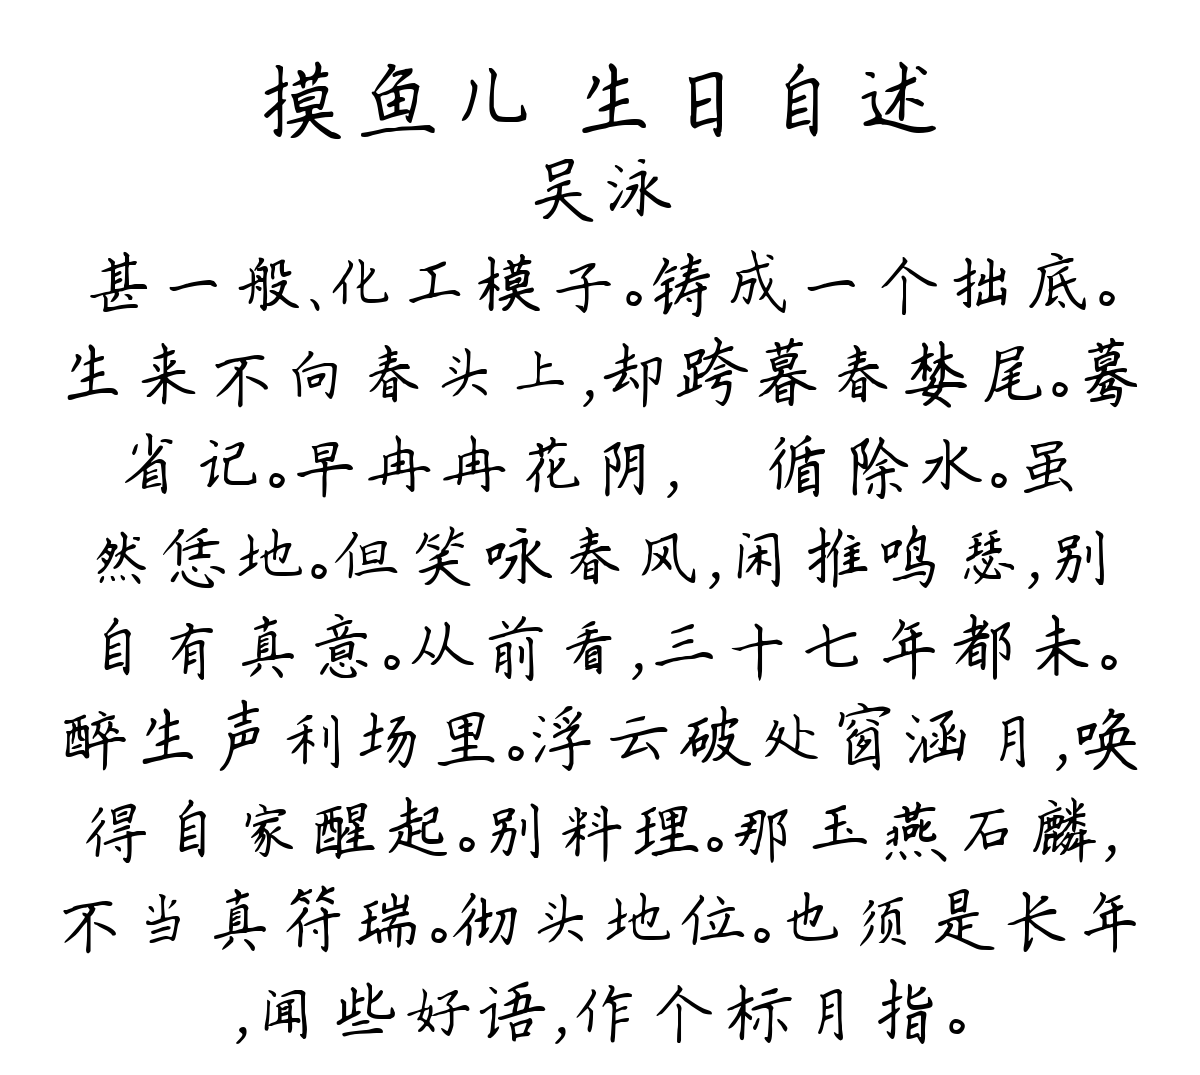 摸鱼儿 生日自述
吴泳
甚一般、化工模子。铸成一个拙底。
生来不向春头上,却跨暮春婪尾。蓦
省记。早冉冉花阴, 循除水。虽
然恁地。但笑咏春风,闲推鸣瑟,别
自有真意。从前看,三十七年都未。
醉生声利场里。浮云破处窗涵月,唤
得自家醒起。别料理。那玉燕石麟,
不当真符瑞。彻头地位。也须是长年
,闻些好语,作个标月指。